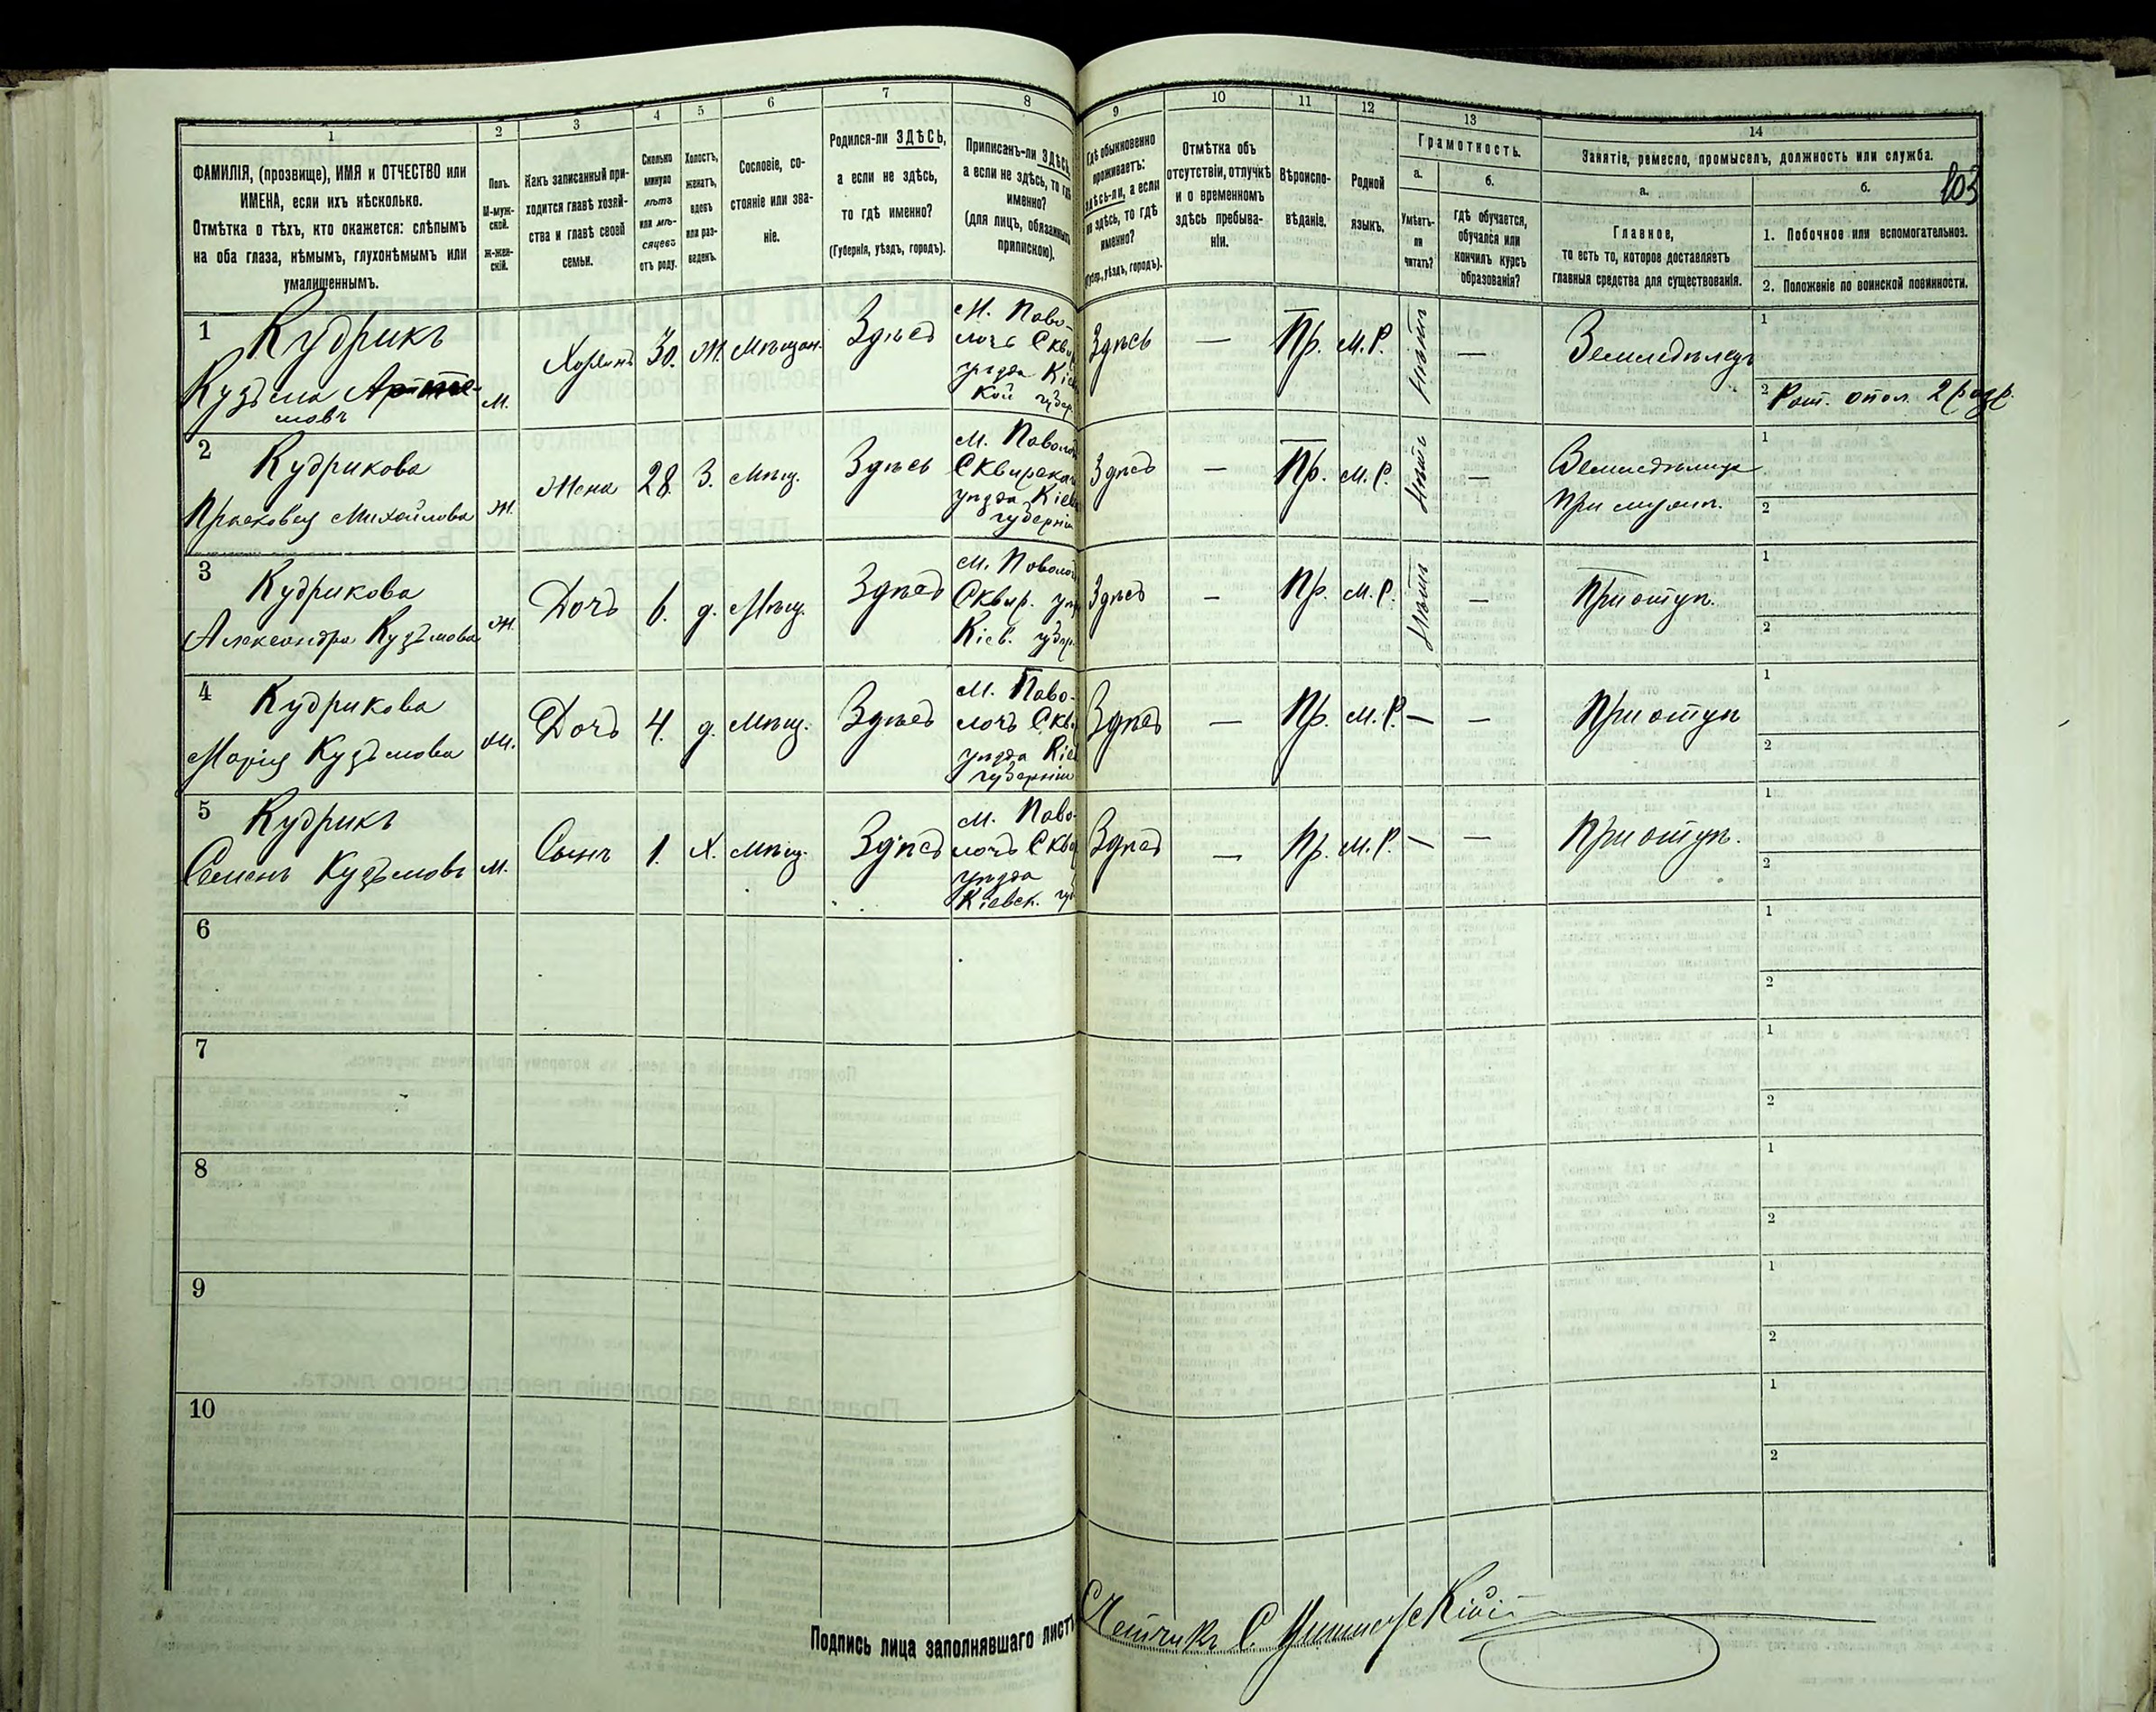 1
2
3
4
5
6
7
8
9
10
11
12
13
14
103
ФАМИЛІЯ, (прозвище), ИМЯ и ОТЧЕСТВО или
ИМЕНА, если ихъ нѣсколько.
Отмѣтка о тѣхъ, кто окажется: слѣпымъ
на оба глаза, нѣмымъ, глухонѣмымъ или
умалишеннымъ.
Полъ.
М-муж-
ской.
Ж-жен-
скій.
Какъ записанный при-
ходится главѣ хозяй-
ства и главѣ своей
семьи.
Сколько
минуло
лѣтъ
или мѣ-
сяцевъ
отъ роду.
Холостъ,
женатъ,
вдовъ
или раз-
веденъ.
Сословіе, со-
стояніе или зва-
ніе.
Родился-ли ЗДѢСЬ,
а если не здѣсь,
то гдѣ именно?
(Губернія, уѣздъ, городъ).
Приписанъ-ли ЗДѢСЬ,
а если не здѣсь, то гдѣ
именно?
(для лицъ, обязанныхъ
припискою).
Гдѣ обыкновенно
проживаетъ:
здѣсь-ли, а если
не здѣсь, то гдѣ
именно?
(Губер., уѣздъ, городъ).
Отмѣтка объ
отсутствіи, отлучкѣ
и о временномъ
здѣсь пребыва-
ніи.
Вѣроиспо-
вѣданіе.
Родной
языкъ.
Грамотность.
а.
Умѣетъ-
ли
читать?
б.
гдѣ обучается,
обучался или
кончилъ курсъ
образованія?
Занятіе, ремесло, промыселъ, должность или служба.
а.
Главное,
то есть то, которое доставляетъ
главныя средства для существованія.
б.
1. Побочное или вспомогательное.
2. Положеніе по воинской повинности.
1 Кудрикъ
Кузьма
мовъ
М. Хозяинъ 30. Ж. Мѣщан. Здѣсь
М. Паво-
лочь Сквир
уѣзда Кіев
кой губер.
Здѣсь — Пр. М.Р. Нѣтъ — Земледѣлецъ
1
2 Рат. опол. 2 разр.
2 Кудрикова
Прасковія Михайлова
Ж. Жена 28. З. Мѣщ. Здѣсь
М. Паволоч
Сквирска
уѣзда Кіев
губерніи
Здѣсь — Пр. М.Р. Нѣтъ — Земледѣлица
При мужѣ.
1
2
3 Кудрикова
Александра Кузьмова
Ж. Дочь 6. д. Мѣщ. Здѣсь
М. Паволоч
Сквир. уѣз
Кіев. губер.
Здѣсь — Пр. М.Р. Нѣтъ — При отцѣ.
1
2
4 Кудрикова
Марія Кузьмова
Ж. Дочь 4. д. Мѣщ. Здѣсь
М. Паво-
лочь Сквир
уѣзда Кіев
губерніи
Здѣсь — Пр. М.Р. — — При отцѣ
1
2
5 Кудрикъ
Семенъ Кузьмовъ
М. Сынъ 1. Х. Мѣщ. Здѣсь
М. Паво-
лочь Сквир
уѣзда
Кіевск. гу
Здѣсь — Пр. М.Р. — — При отцѣ.
1
2
6
1
2
7
1
2
8
1
2
9
1
2
10
1
2
Подпись лица заполнявшаго листъ Счетчикъ С.